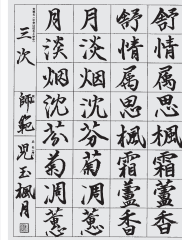 舒情属思楓霜香
舒情属思楓霜香
月淡烟沈芬菊凋蕙
月淡烟沈芬菊凋蕙
三次 師範 児玉楓月